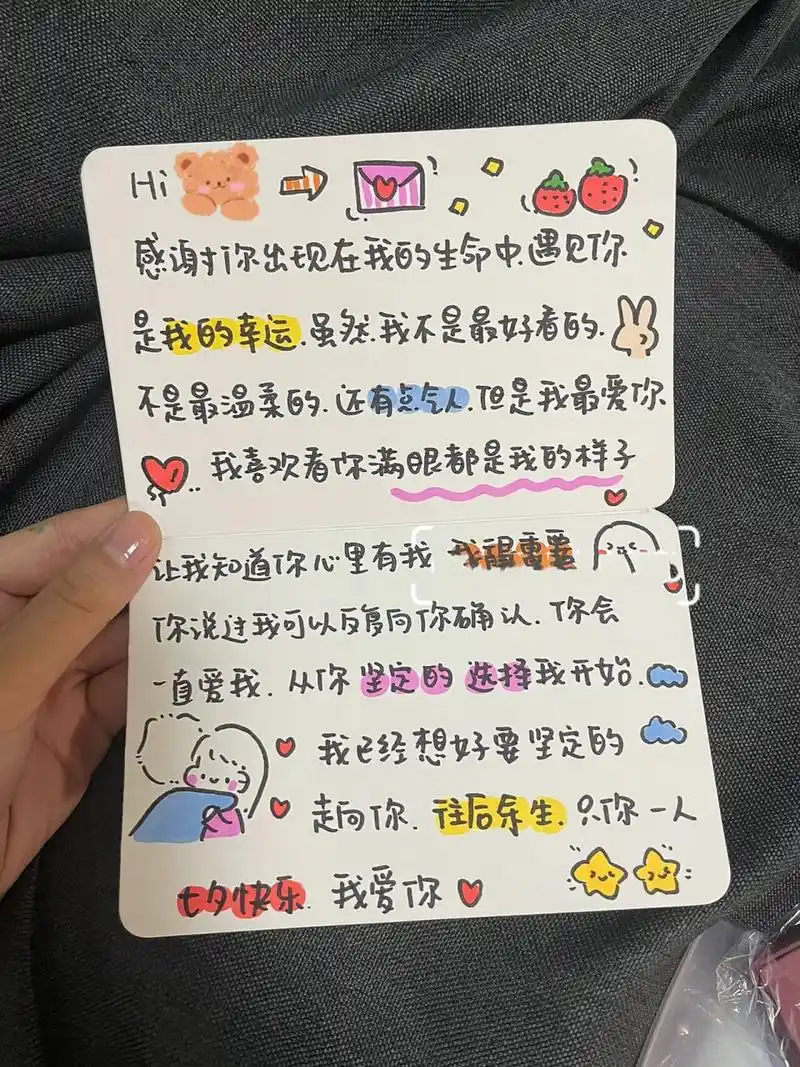 Hi
感谢你出现在我的生命中.遇见你
是我的幸运.虽然.我不是最好看的.
不是最温柔的.还有点气人.但是我最爱你
我喜欢看你满眼都是我的样子
让我知道你心里有我 我很重要
你说过我可以反复向你确认.你会
一直爱我.从你坚定的选择我开始.
我已经想好要坚定的
走向你.往后余生.只你一人
七夕快乐.我爱你